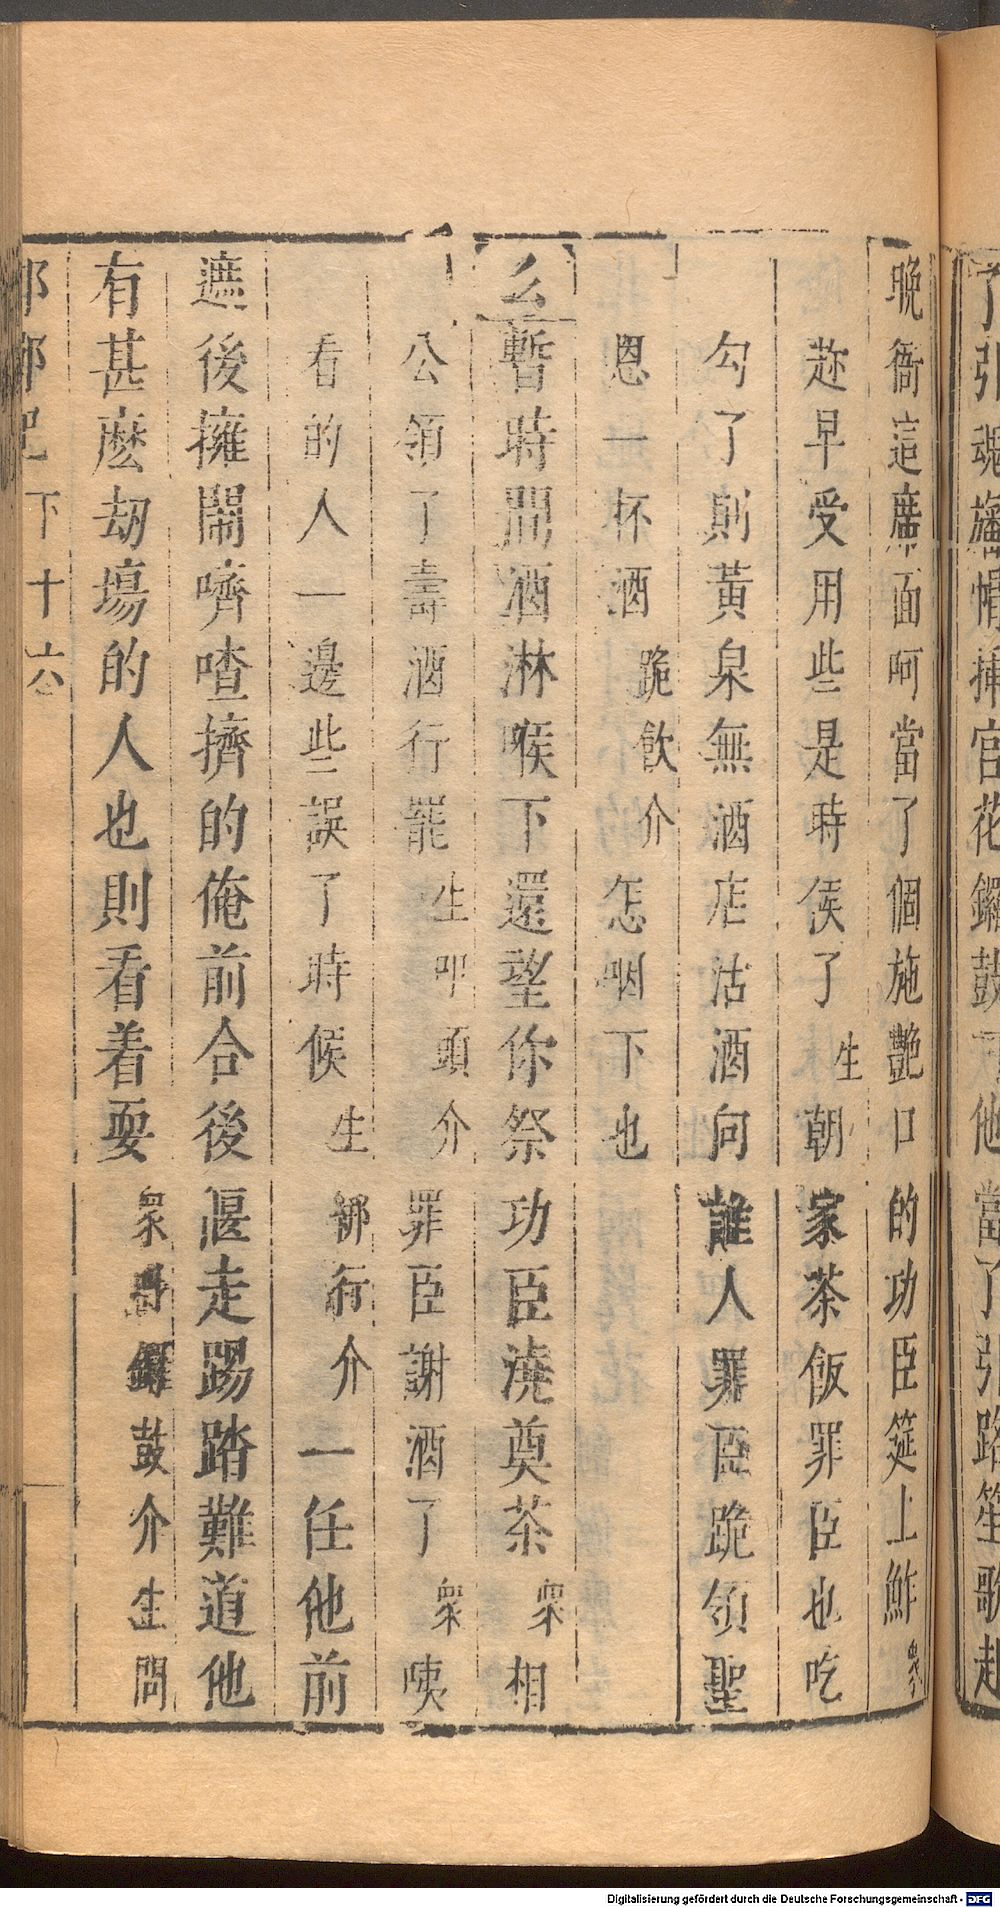 了引魂旛帽插宮花鑼鼓下他當了引路笙歌赴
晚衙這席面呵當了個施艷口的功臣筵上鮓衆
趂早受用些是時候了生朝家茶飯罪臣也吃
勾了則黃泉無酒店沽酒向誰人罪臣跪領聖
恩一杯酒跪飲介怎咽下也
么暫時間酒淋喉下還望你祭功臣澆奠茶衆相
公領了壽酒行罷生叩頭介罪臣謝酒了衆咦
看的人一邊些誤了時候生綁行介一任他前
遮後擁鬧嚌喳擠的俺前合後偃走踢踏難道他
有甚麽刼塲的人也則看着耍衆鑼鼓介生問
邯鄲記 下 十六
Digitalisierung gefördert durch die Deutsche Forschungsgemeinschaft - DFG